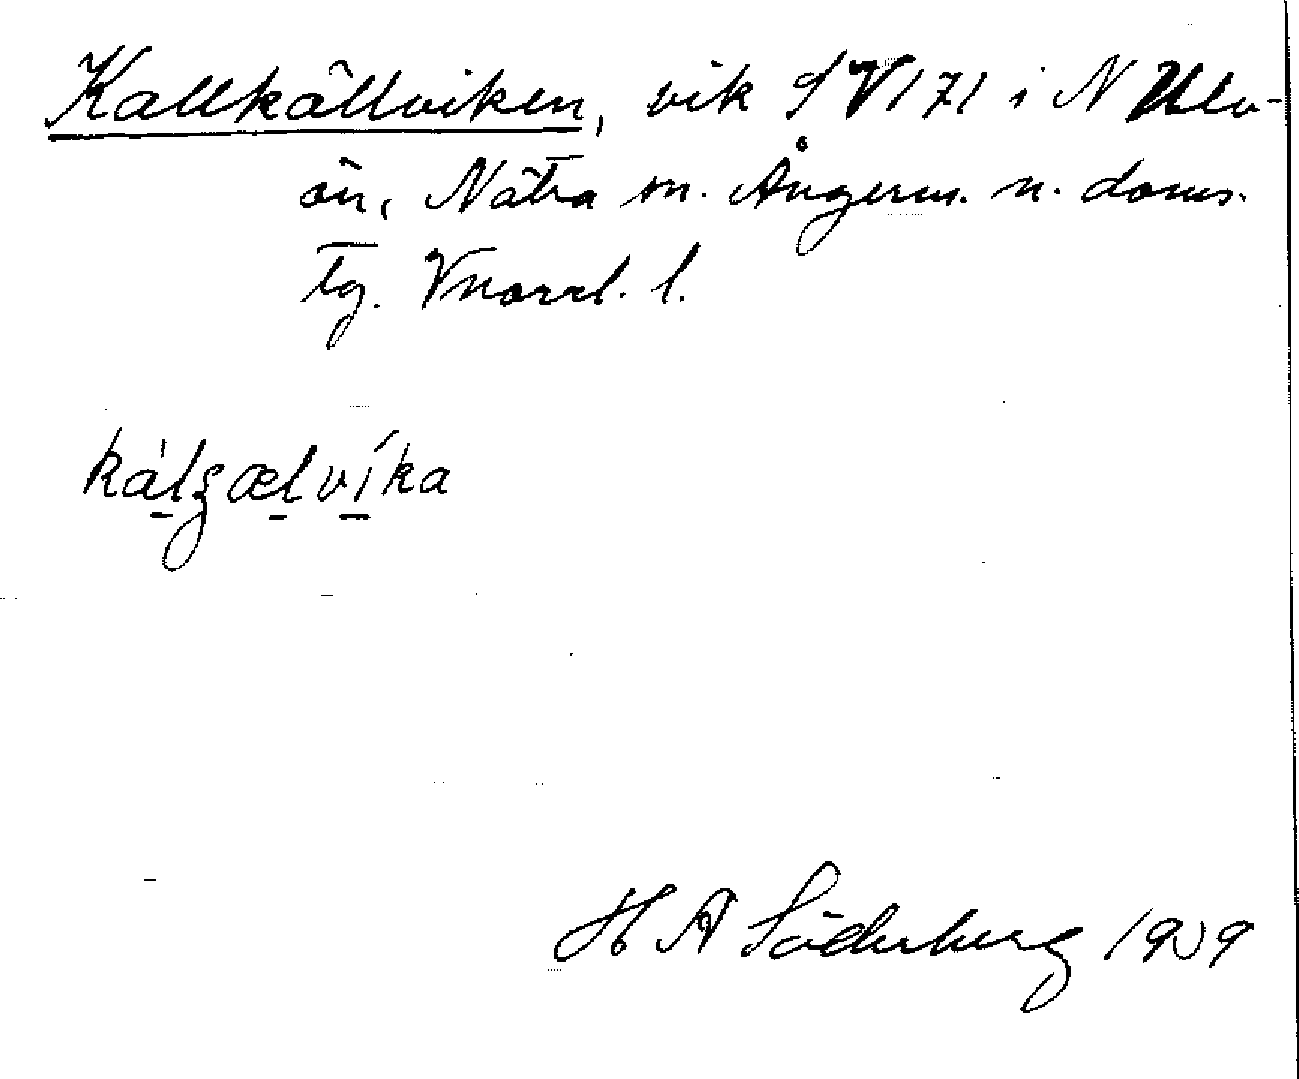 Kallkällviken, vik S V171 i N Ulv-
ön, Nätra sn. Ångerm. n. doms.
tg. Vnorrl. l.
kálʒælvíka
H A Söderberg 1939